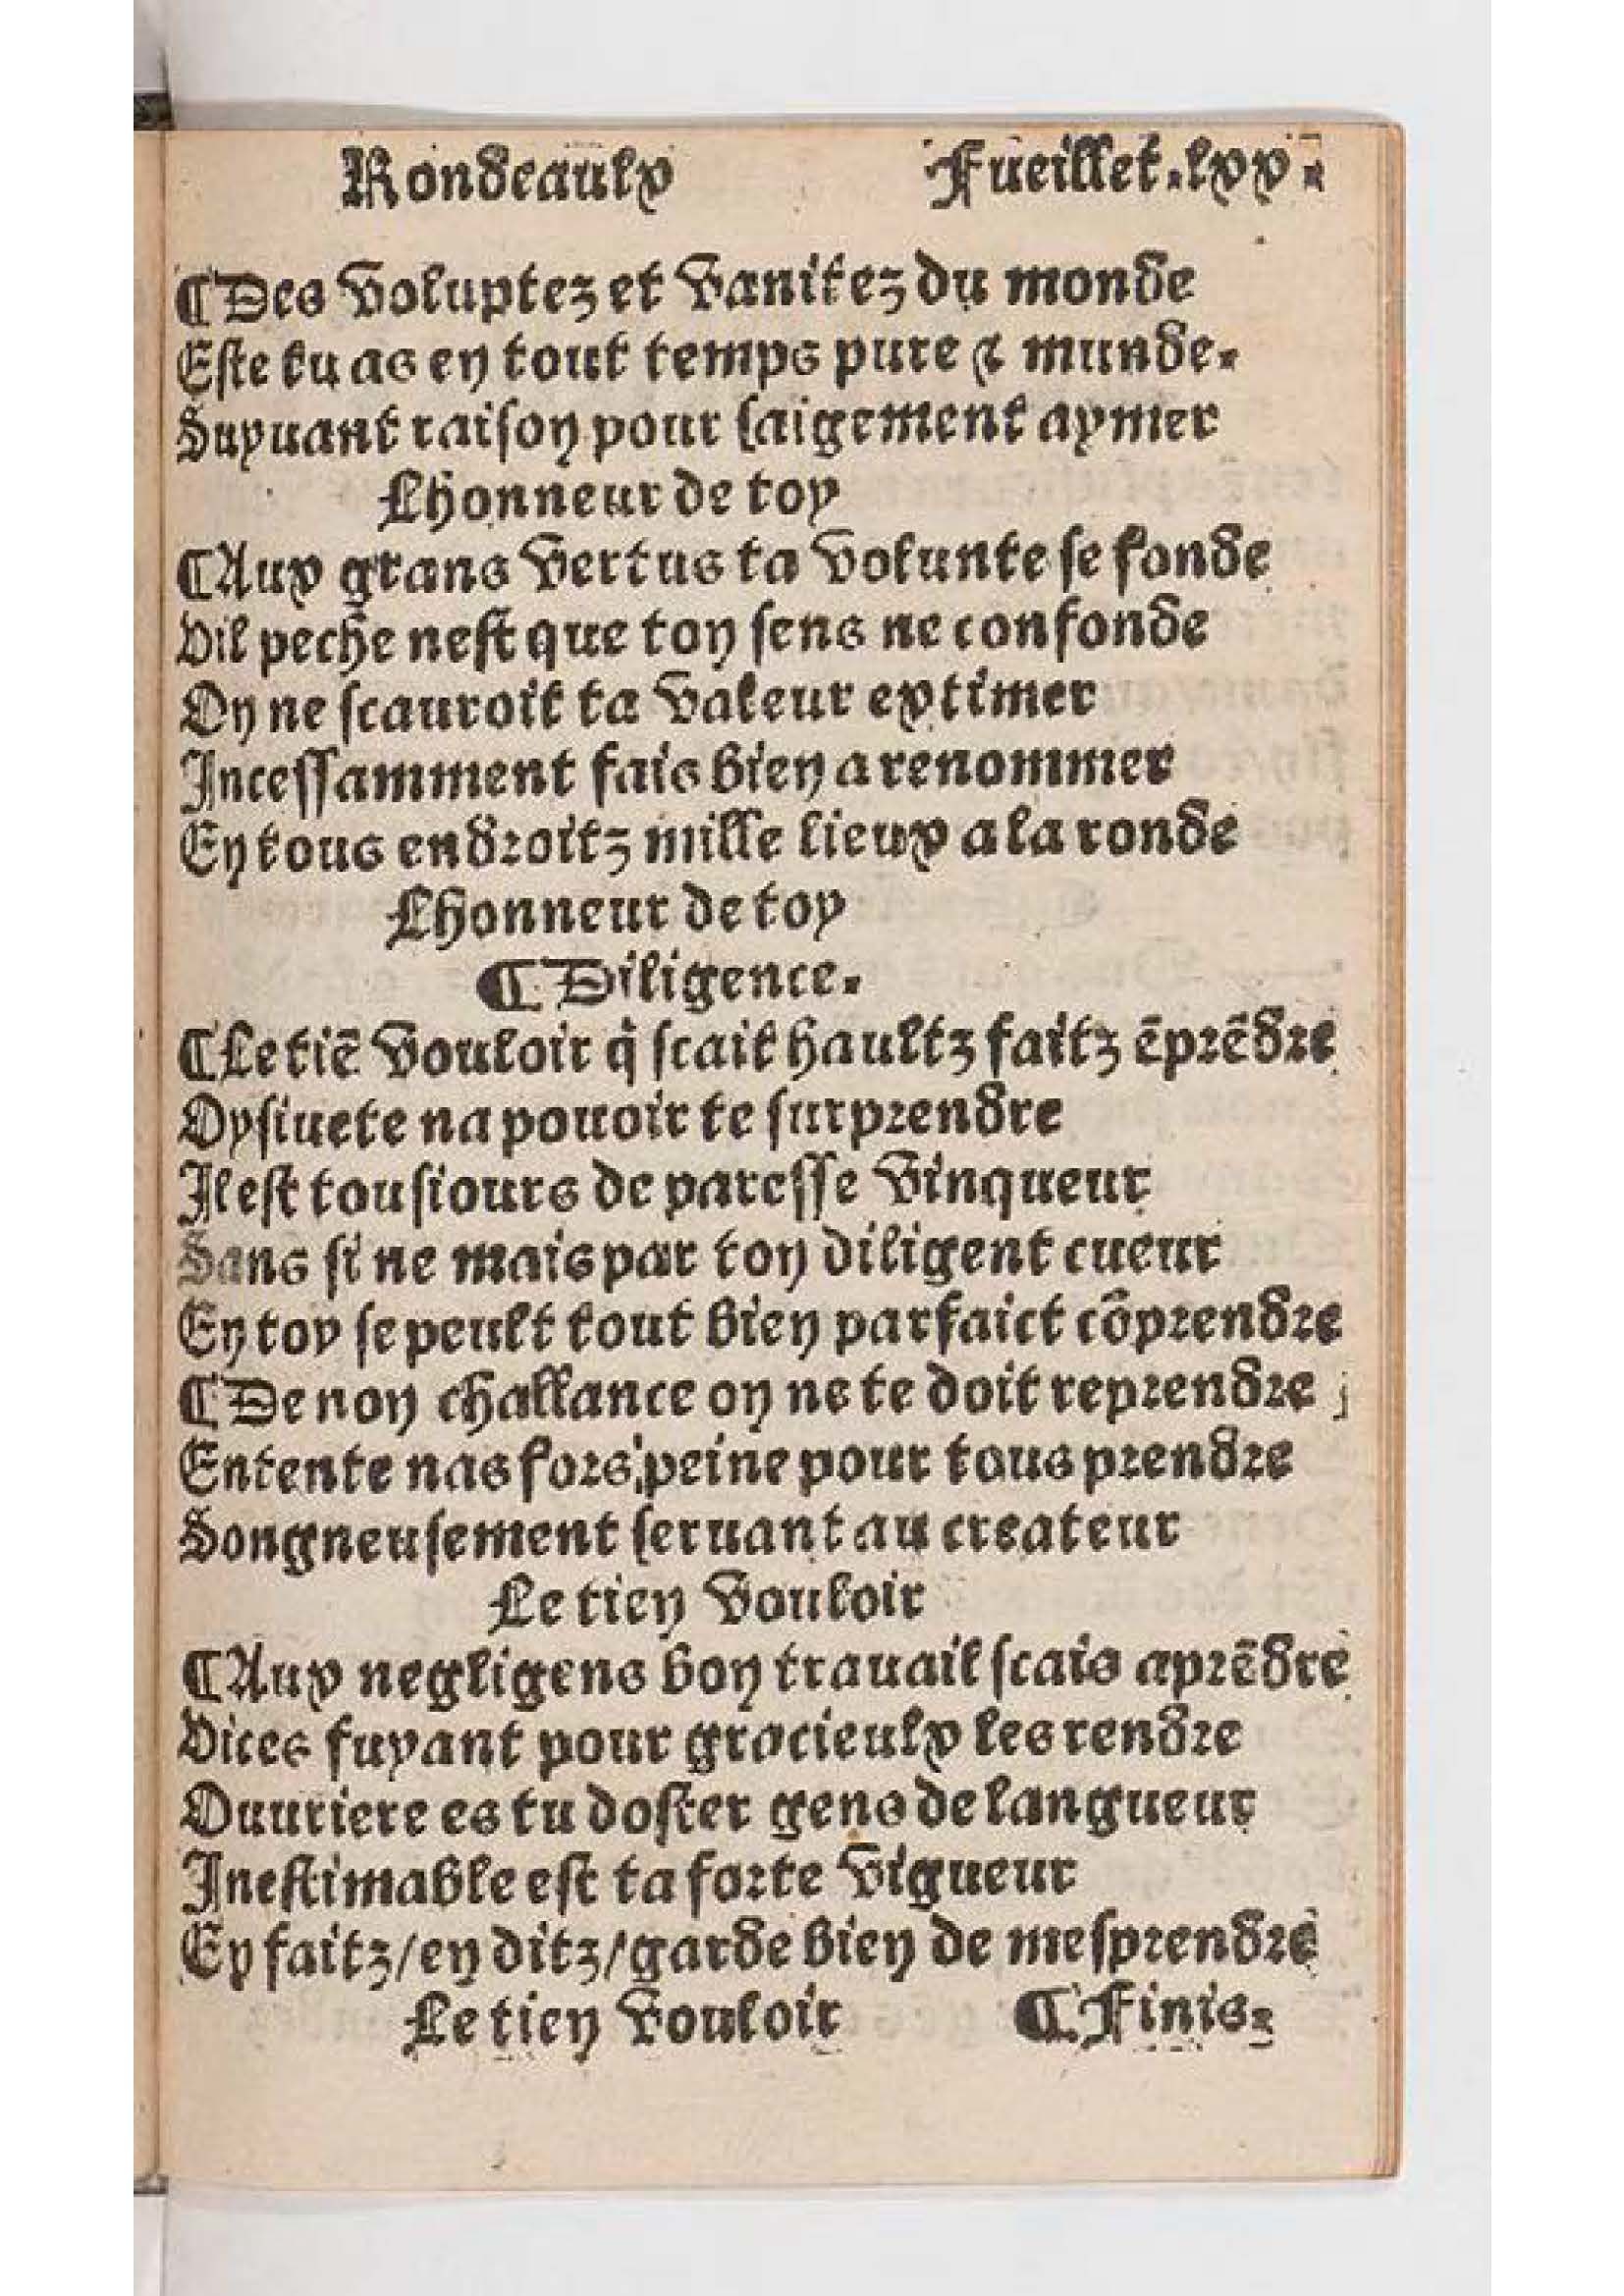 Rondeaulx Fueillet.lxx.
¶Des voluptez et vanitez du monde
Este tu as en tout temps pure & munde.
Suyuant raison pour saigement aymer
Lhonneur de toy
¶Aux grans vertus ta volunte se fonde
Vil peche nest que ton sens ne confonde
On ne scauroit ta valeur extimer
Incessamment fais bien a renommer
En tous endroitz mille lieux a la ronde
Lhonneur de toy
¶Diligence.
¶Le tiē vouloir q̇ scait haultz faitz ēprēdre
Oysiuete na pouoir te surprendre
Il est tousiours de paresse vinqueur
Sans si ne mais par ton diligent cueur
En toy se peult tout bien parfaict cōprendre
¶De non challance on ne te doit reprendre
Entente nas fors peine pour tous prendre
Songneusement seruant au createur
Le tien vouloir
¶Aux negligens bon trauail scais aprēdre
Vices fuyant pour gracieulx les rendre
Ouuriere es tu doster gens de langueur
Inestimable est ta forte vigueur
En faitz/en ditz/garde bien de mesprendre
Le tien vouloir ¶Finis.